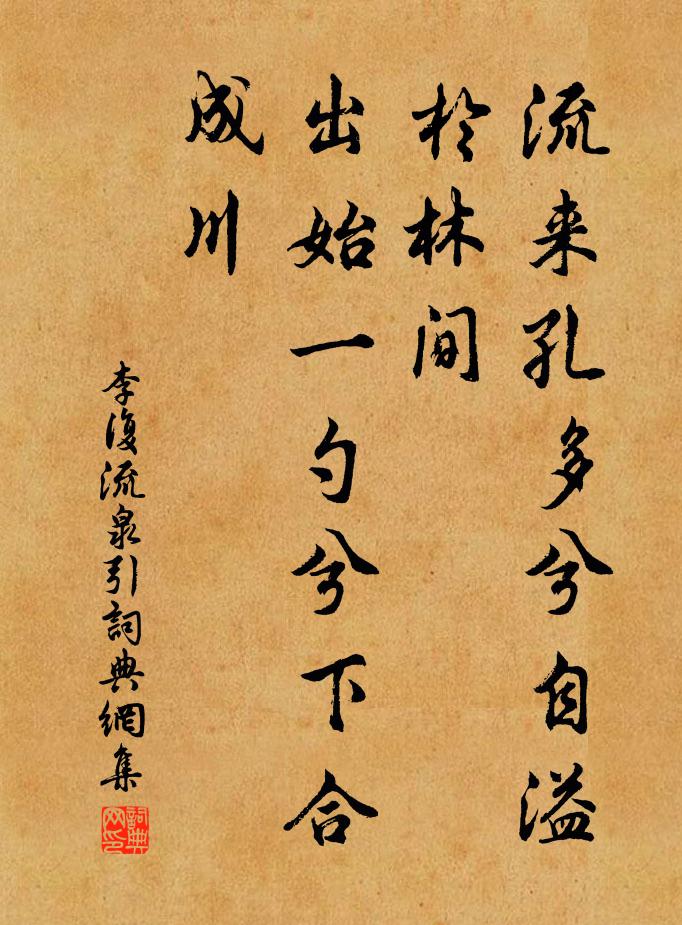 流来孔多兮自溢
於林間
出始一勺兮下合
成川
李復流泉引詞典網集
詞典网印